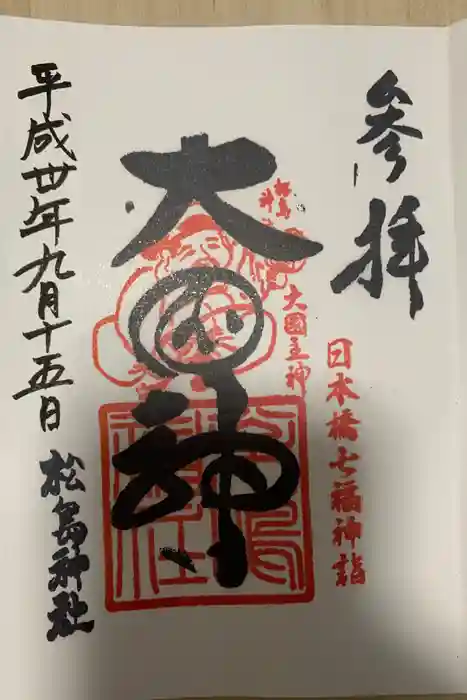 参拝
日本橋七福神詣
松島神社
大國主神
大国神
平成廿年九月十五日
松島神社